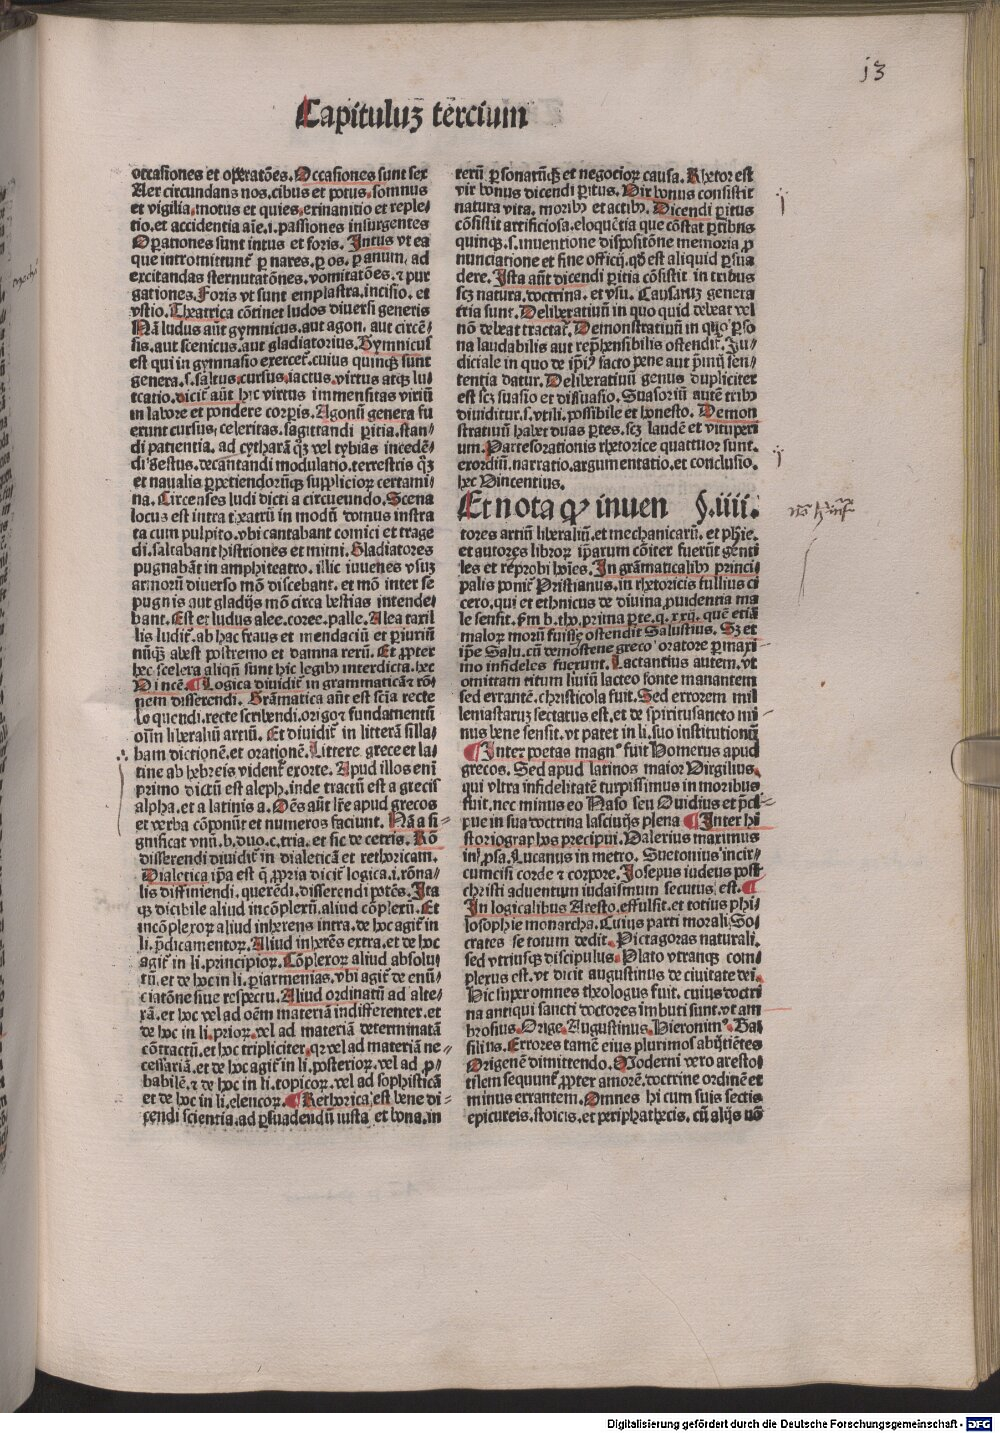 13
Capituluʒ tercium
occasiones et operatões. Occasiones sunt sex
Aer circundans nos. cibus et potus. somnus
et vigilia. motus et quies. exinanitio et reple⸗
tio. et accidentia aĩe. i. passiones insurgentes
Operationes sunt intus et foris. Intus vt ea
que intromittunt᷑ ꝑ nares. ꝑ os. ꝑ anum. ad
excitandas sternutatõnes. vomitatões. ⁊ pur
gationes. Foris vt sunt emplastra. incisio. et
vstio. Theatrica cõtinet ludos diuersi generis
Nã ludus aũt gymnicus. aut agon. aut circẽ⸗
sis. aut scenicus. aut gladiatorius. Gymnicus
est qui in gymnasio exercet᷑. cuius quinqꝫ sunt
genera. s. saltus. cursus. iactus. virtus atqꝫ lu⸗
ctatio. dicit᷑ aũt hic virtus immensitas viriũ
in labore et pondere corꝑis. Agonũ genera fu
erunt cursus, celeritas. sagittandi ꝑitia. stan⸗
di patientia. ad cytharã qꝫ vel tybias incedẽ⸗
di gestus. decantandi modulatio. terrestris qꝫ
et naualis ꝑpetiendorũqꝫ suppliciorꝝ certami⸗
na. Circenses ludi dicti a circueundo. Scena
locus est intra theatrũ in modũ domus instra
ta cum pulpito. vbi cantabant comici et trage
di. saltabant histriones et mimi. Gladiatores
pugnabãt in amphiteatro. illic iuuenes vsuꝫ
armorũ diuerso mõ discebant. et mõ inter se
pugnis aut gladijs mõ circa bestias intende⸗
bant. Est et ludus alee. coree. palle. Alea taxil
lis ludit᷑. ab hac fraus et mendaciũ et ꝑiuriũ
nũqꝫ abest postremo et damna rerũ. Et ꝓpter
hec scelera aliqñ sunt hic legibꝰ interdicta. hec
Vincẽ. ¶ Logica diuidit᷑ in grammaticã ⁊ rõ⸗
nem disserendi. Grãmatica aũt est scĩa recte
loquendi. recte scribendi. origo ⁊ fundamentũ
oĩm liberaliũ artiũ. Et diuidit᷑ in litterã silla⸗
bam dictionẽ. et orationẽ. Littere grece et la⸗
tine ab hebreis vident᷑ exorte. Apud illos enĩ
primo dictũ est aleph. inde tractũ est a grecis
alpha. et a latinis a. Oẽs aũt lr̃e apud grecos
et verba cõponũt et numeros faciunt. Nã a si⸗
gnificat vnũ. b. duo. c. tria. et sic de cetris. Rõ
disserendi diuidit᷑ in dialeticã et rethoricam.
Dialetica ip̃a est q̃ ꝓpria dicit᷑ logica. i. rõna⸗
lis diffiniendi. querẽdi. disserendi potẽs. Ita
qꝫ dicibile aliud incõplexũ. aliud cõplexũ. Et
incõplexorꝝ aliud inherens intra. de hoc agit᷑ in
li. p̃dicamentorꝝ. Aliud inherẽs extra. et de hoc
agit᷑ in li. principiorꝝ. Cõplexorꝝ aliud absolu
tũ. et de hoc in li. ꝑiarmenias. vbi agit᷑ de enũ⸗
ciatõne siue respectu. Aliud ordinatũ ad alte⸗
rã. et hoc vel ad oẽm materiã indifferenter. et
de hoc in li. priorꝝ. vel ad materiã determinatã
cõtractũ. et hoc tripliciter. qꝛ vel ad materiã ne⸗
cessariã. et de hoc agit᷑ in li. posteriorꝝ. vel ad ꝓ⸗
babilẽ. ⁊ de hoc in li. topicorꝝ. vel ad sophisticã
et de hoc in li. elencorꝝ. ¶ Rethorica est bene di⸗
cendi scientia. ad ꝑsuadendũ iusta et bona. in
rerũ ꝑsonarũqꝫ et negociorꝝ causa. Rhetor est
vir bonus dicendi ꝑitus. Vir bonus consistit
natura vita. moribꝰ et actibꝰ. Dicendi ꝑitus
cõsistit artificiosa. eloquẽtia que cõstat ꝑtibus
quinqꝫ. s. inuentione dispositõne memoria ꝓ
nunciatione et fine officij. qđ est aliquid ꝑsua
dere. Ista aũt dicendi ꝑitia cõsistit in tribus
scꝫ natura. doctrina. et vsu. Causaruꝫ genera
tria sunt. Deliberatiuũ in quo quid debeat vel
nõ debeat tractat᷑. Demonstratiuũ in quo ꝑso
na laudabilis aut rep̃hensibilis ostendit᷑. Iu⸗
diciale in quo de ip̃iꝰ facto pene aut p̃mij sen⸗
tentia datur. Deliberatiuũ genus dupliciter
est scꝫ suasio et dissuasio. Suasoriũ autẽ tribꝰ
diuiditur. s. vtili. possibile et honesto. Demon
stratiuũ habet duas ꝑtes. scꝫ laudẽ et vituperi
um. Partes orationis rhetorice quattuor sunt.
exordiũ. narratio. argumentatio. et conclusio.
hec Vincentius.
Et nota qꝙ inuen §. iiii.
tores artiũ liberaliũ. et mechanicarũ. et phĩe.
et autores librorꝝ ip̃arum cõiter fuerũt genti
les et reprobi hoĩes. In grãmaticalibꝰ princi⸗
palis ponit᷑ Pristianus. in rhetoricis tullius ci
cero. qui et ethnicus de diuina ꝓuidentia ma
le sensit. fm b. tho. prima ꝑte. q. xxij. quẽ etiã
malorꝝ morũ fuisse ostendit Salustius. Sꝫ et
ip̃e Salu. cũ demostene greco oratore ꝑmaxi⸗
mo infideles fuerunt. Lactantius autem. vt
omittam titum liuiũ lacteo fonte manantem
sed errantẽ. christicola fuit. Sed errorem mil
leniastaruꝫ sectatus est. et de spiritusancto mi⸗
nus bene sensit. vt patet in li. suo institutionũ
¶ Inter poetas magnꝰ fuit Homerus apud
grecos. Sed apud latinos maior Virgilius.
qui vltra infidelitatẽ turpissimus in moribus
fuit. nec minus eo Naso seu Ouidius et p̃ci⸗
pue in sua doctrina lasciuijs plena ¶ Inter hi
storiographos precipui. Valerius maximus
in ꝓsa. Lucanus in metro. Suetonius incir⸗
cumcisi corde ⁊ corpore. Josepus iudeus post
christi aduentum iudaismum secutus est. ¶
In logicalibus Aresto. effulsit. et totius phi⸗
losophie monarcha. Cuius parti morali So⸗
crates se totum dedit. Pictagoras naturali.
sed vtriusqꝫ discipulus. Plato vtranqꝫ com⸗
plexus est. vt dicit augustinus de ciuitate dei.
Hic super omnes theologus fuit. cuius doctri
na antiqui sancti doctores imbuti sunt. vt am
brosius. Orige. Augustinus. Hieronimꝰ. Ba⸗
silius. Errores tamẽ eius plurimos abijciẽtes
Origenẽ dimittendo. Moderni vero aresto⸗
tilem sequunt᷑ ꝓpter amorẽ. doctrine ordinẽ et
minus errantem. Omnes hi cum suis sectis
epicureis. stoicis. et peripathecis. cũ alijs nõ
Digitalisierung gefördert durch die Deutsche Forschungsgemeinschaft - DFG